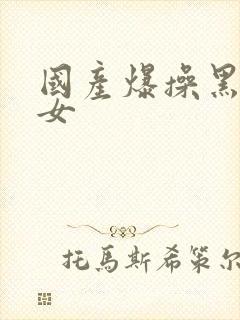 國產爆操黑
女
托馬斯希策尔